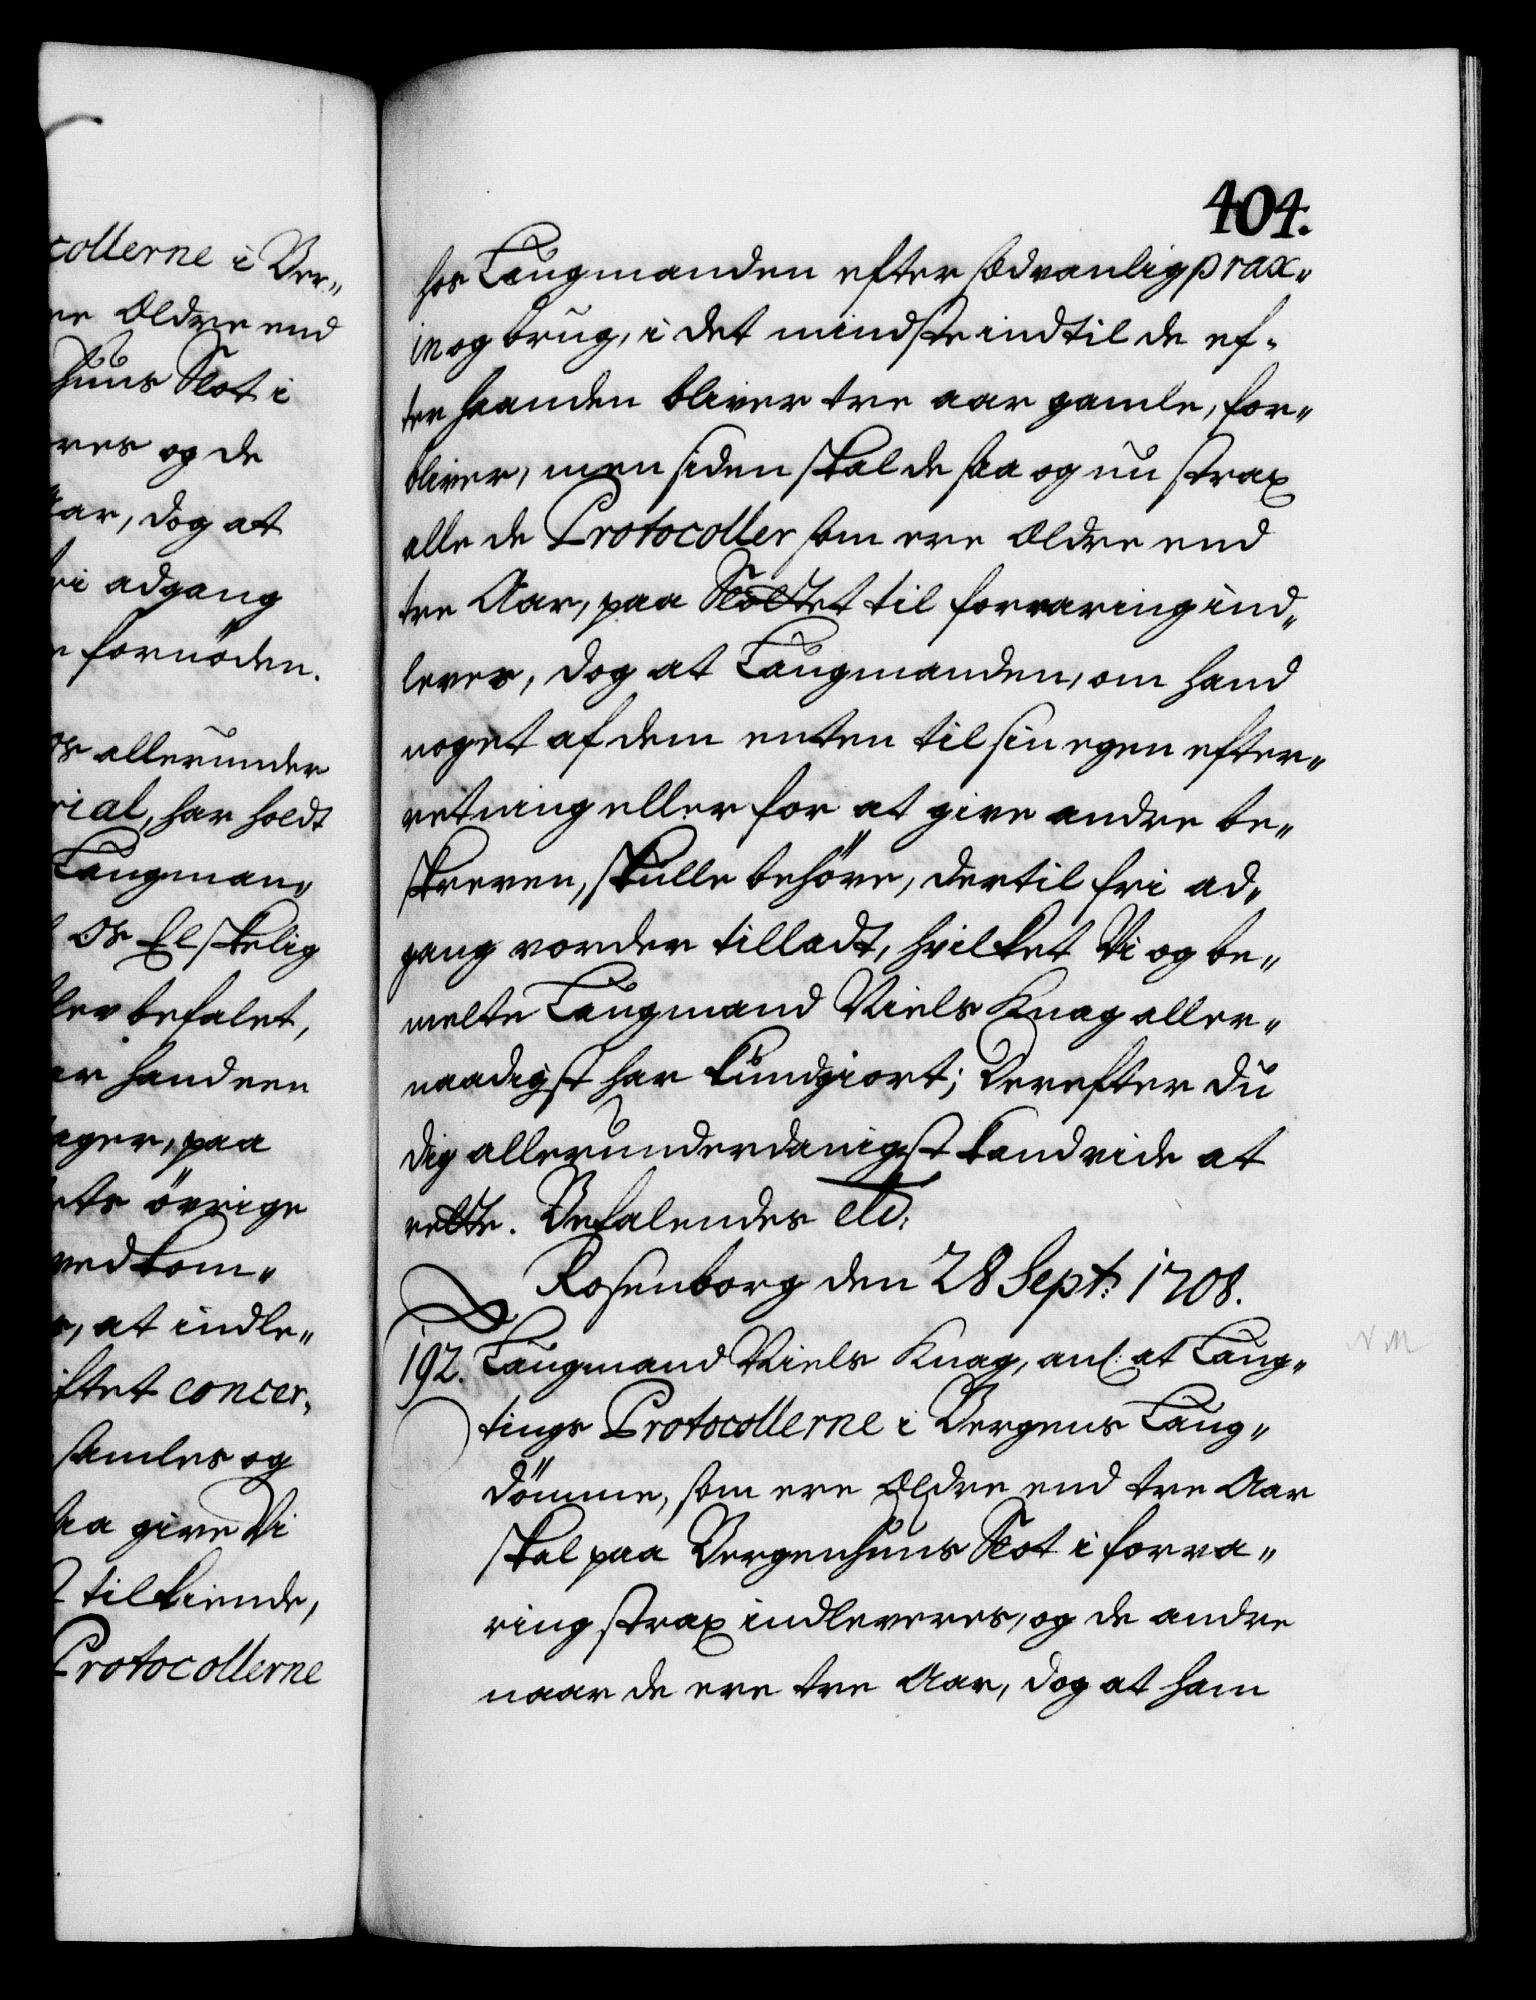 collerne i Ber„
re Ældre end
huus Slot i
res og de
Aar, dog at
fri adgang
fornöden.
os allerunder
rial, har holdt
Laugman„
Os Elskelig
ler befalet,
er hand een
ager, paa
ets övrige
vedkom„
at indle„
iftet concer„
samles og
saa give Vi
tilkiende,
Protocollerne
404.
hos Laugmanden efter sædvanlig prax„
in og brug, i det mindste indtil de ef„
ter haanden bliver tre aar gamle, for„
bliver, men siden skal de saa og nu strax
alle de Protocoller som ere Ældre end
tre Aar, paa Slottet til forvaring ind„
leves, dog at Laugmanden, om hand
noget af dem enten til sin egen efter„
retning eller for at give andre be„
skreven, skulle behöve, dertil fri ad„
gang vorder tilladt, hvilket Vi og be„
melte Laugmand Niels Knag aller„
naadigst har kundgiort; Derefter du
dig allerunderdanigst kand vide at
rette. Befalendes etc:
Rosenborg den 28 Sept: 1708.
192. Laugmand Niels Knag, anl: at Laug„
tings Protocollerne i Bergens Laug„
dömme, som ere Ældre end tre Aar
skal paa Bergenhuus Slot i forva„
ring strax indleveres, og de andre
naar de ere tre Aar, dog at ham
N M